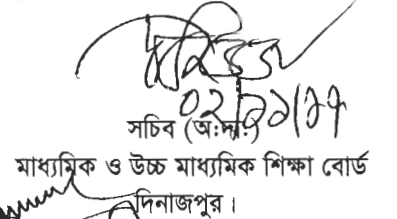 সচিব (অ:দা:)
মাধ্যমিক ও উচ্চ মাধ্যমিক শিক্ষা বোর্ড
দিনাজপুর।